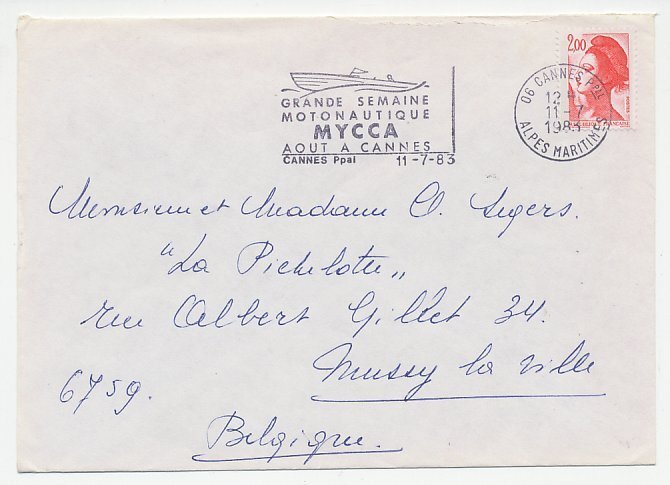 GRANDE SEMAINE
MOTONAUTIQUE
MYCCA
AOUT A CANNES
CANNES Ppal 11-7-83
2,00
06 CANNES Ppal
12 H
11-7
1983
ALPES MARITIMES
Monsieur et Madame O. Segers.
"La Pichelotte"
rue Albert Gillet 34.
Mussy la ville
6759.
Belgique.